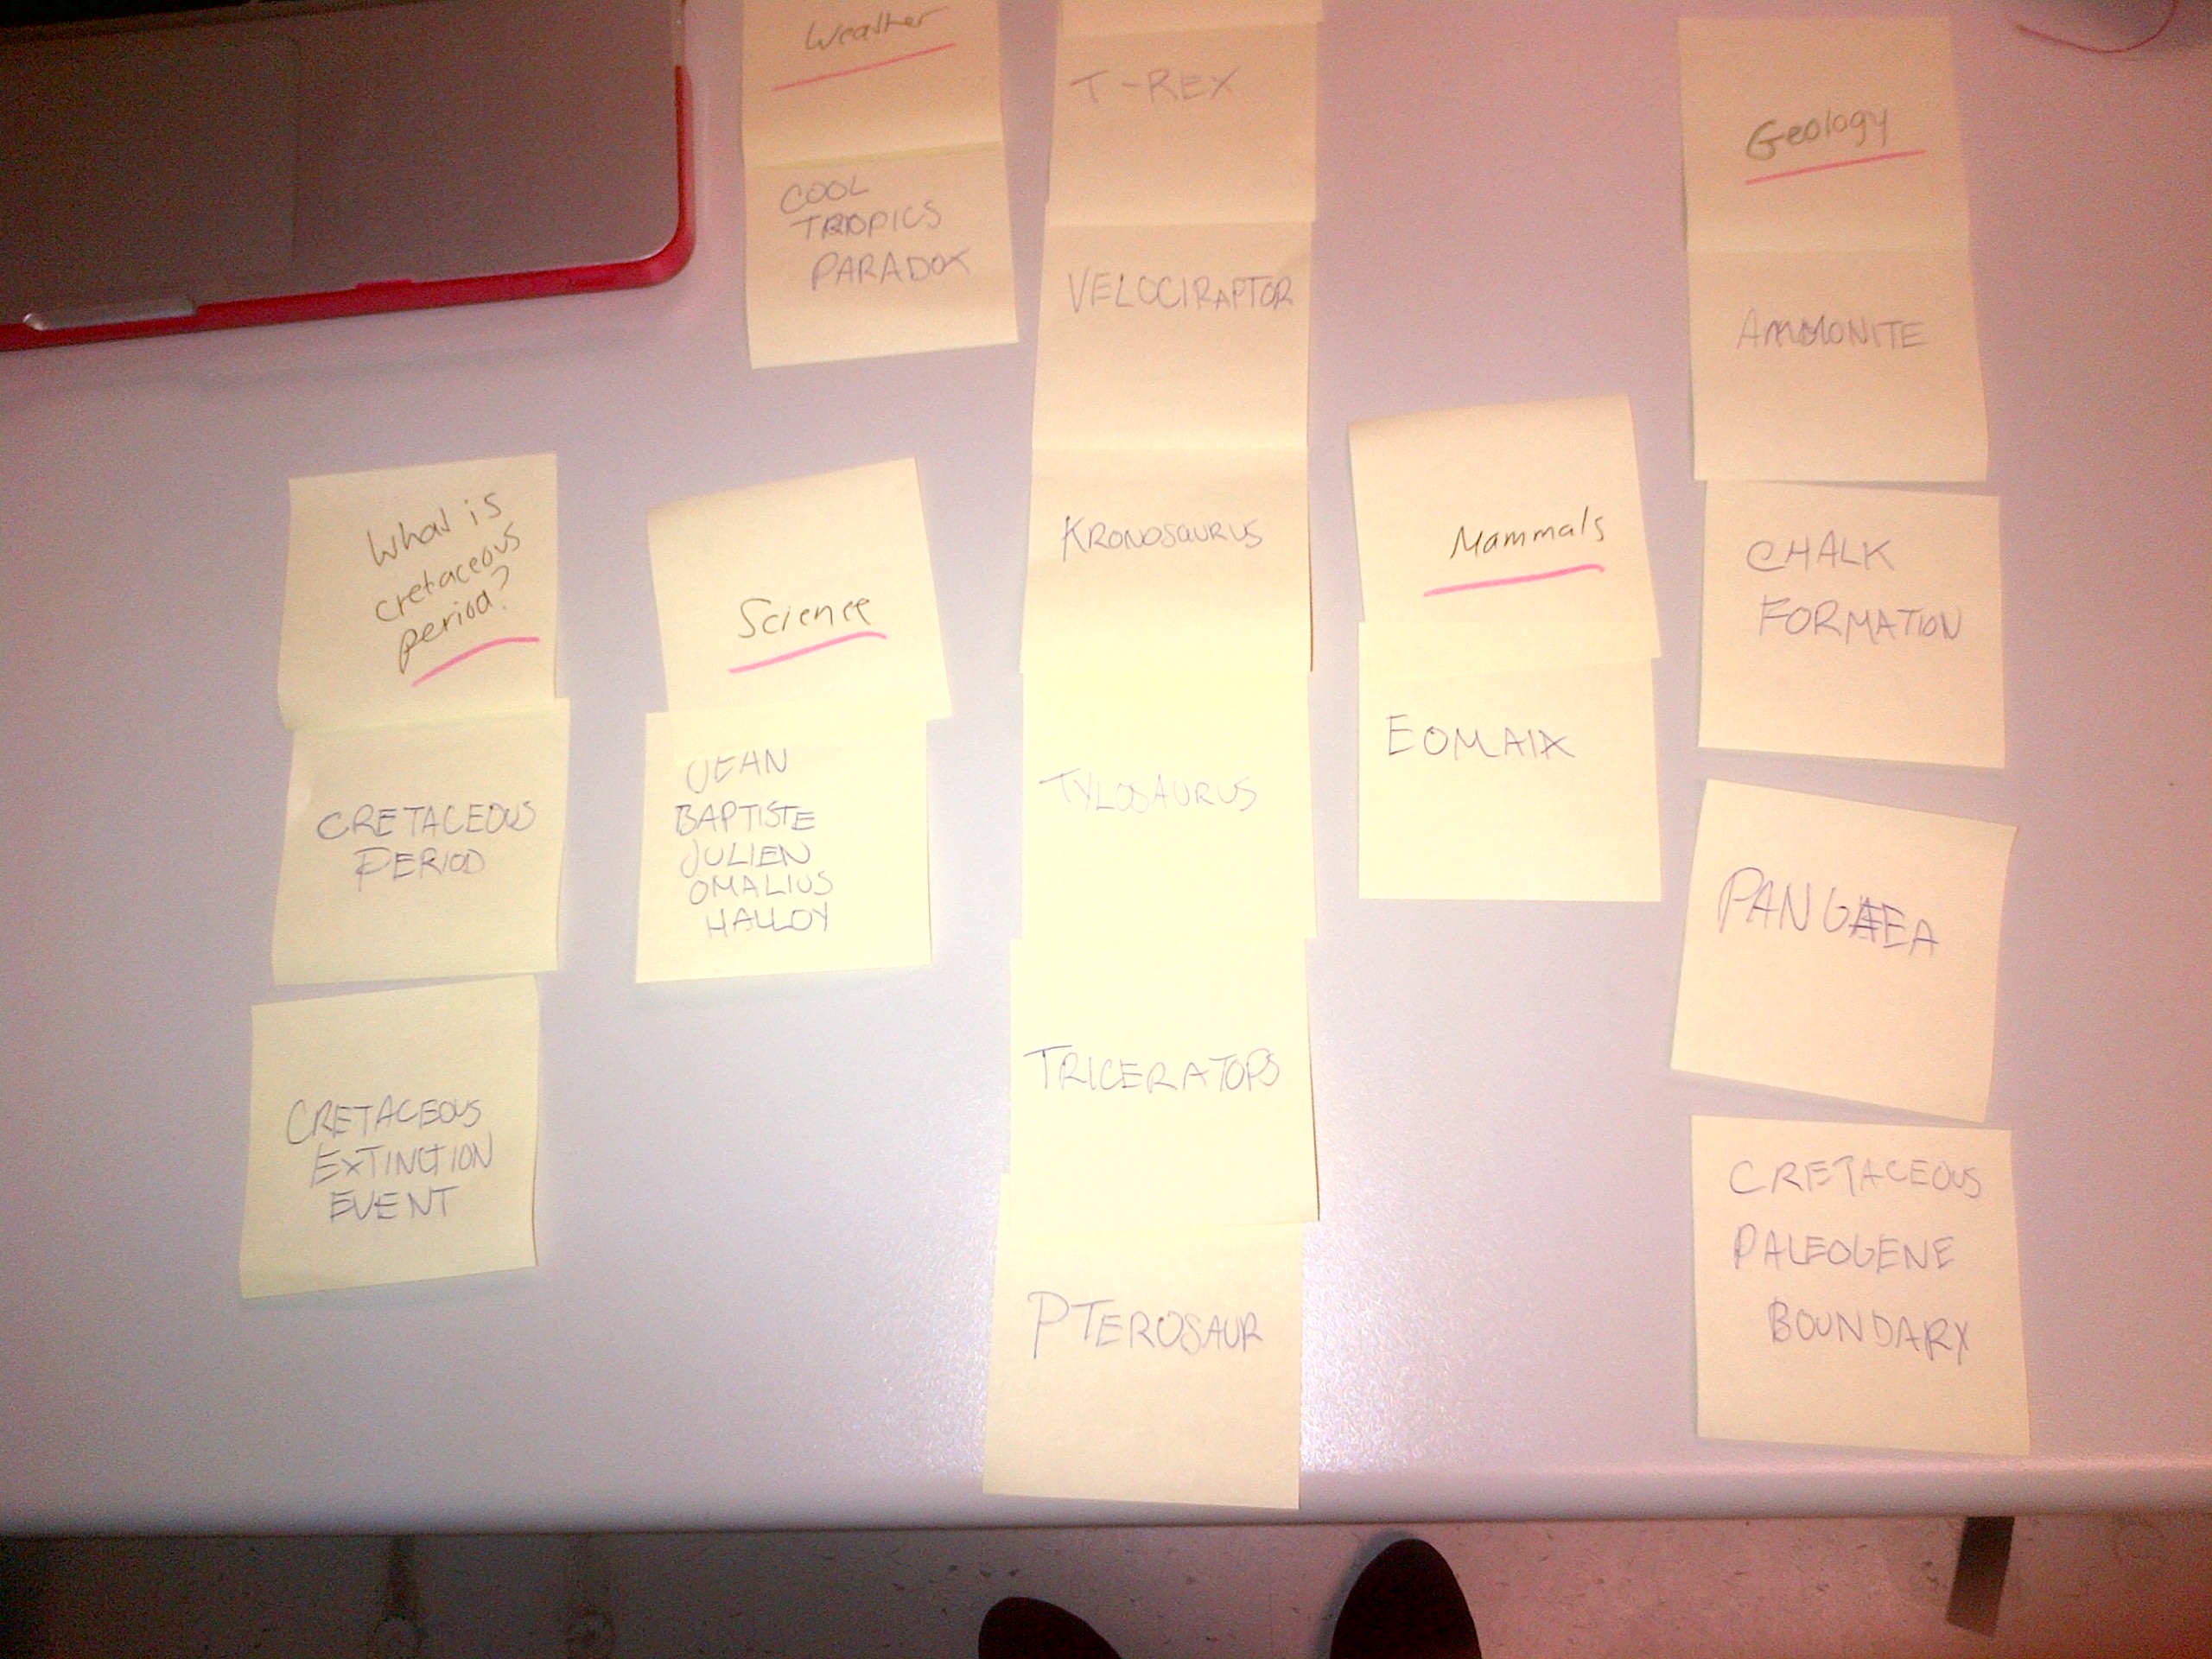 Weather
COOL
TROPICS
PARADOX
What is
cretaceous
period?
CRETACEOUS
PERIOD
CRETACEOUS
EXTINCTION
EVENT
Science
JEAN
BAPTISTE
JULIEN
OMALIUS
HALLOY
T-REX
VELOCIRAPTOR
KRONOSAURUS
TYLOSAURUS
TRICERATOPS
PTEROSAUR
Mammals
EOMAIA
Geology
AMMONITE
CHALK
FORMATION
PANGAEA
CRETACEOUS
PALEOGENE
BOUNDARY